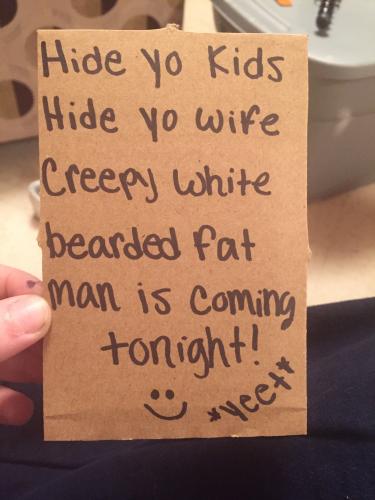 Hide yo Kids
Hide yo wife
Creepy white
bearded fat
man is coming
tonight!
*yeet*